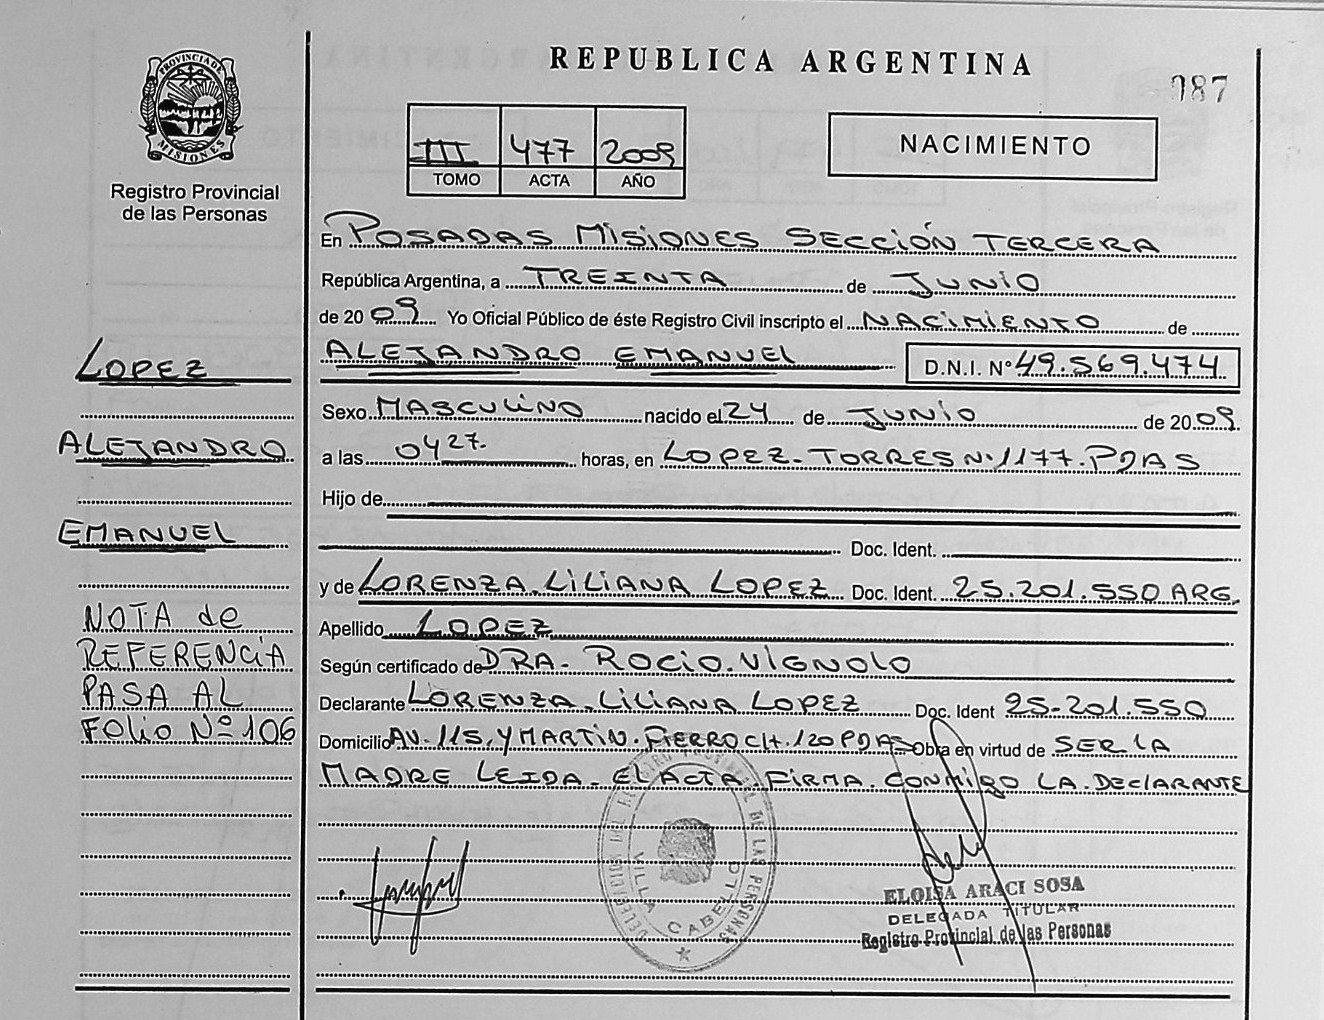 REPUBLICA ARGENTINA
087
PROVINCIA DE MISIONES
Registro Provincial
de las Personas
III 477 2009
TOMO ACTA AÑO
NACIMIENTO
En POSADAS MISIONES SECCIÓN TERCERA
República Argentina, a TREINTA de JUNIO
de 2009 Yo Oficial Público de éste Registro Civil inscripto el NACIMIENTO de
ALEJANDRO EMANUEL D.N.I. Nº 49.569.474
Sexo MASCULINO nacido el 24 de JUNIO de 2009.
a las 0427. horas, en LOPEZ-TORRES Nº1177.PDAS
Hijo de
Doc. Ident.
y de LORENZA.LILIANA LOPEZ Doc. Ident. 25.201.550 ARG.
Apellido LOPEZ
Según certificado de DRA- ROCIO.VIGNOLO
Declarante LORENZA.LILIANA LOPEZ Doc. Ident 25-201.550
Domicilio AV.115.Y MARTIN.FIERRO CH.120 PDAS Obra en virtud de SER LA
MADRE LEIDA. EL ACTA FIRMA CONMIGO LA.DECLARANTE
LOPEZ
ALEJANDRO
EMANUEL
NOTA de
REFERENCIA
PASA AL
FOLIO Nº 106
DELEGACION DEL REGISTRO PROVINCIAL DE LAS PERSONAS
VILLA CABELLO
ELOISA ARACI SOSA
DELEGADA TITULAR
Registro Provincial de las Personas